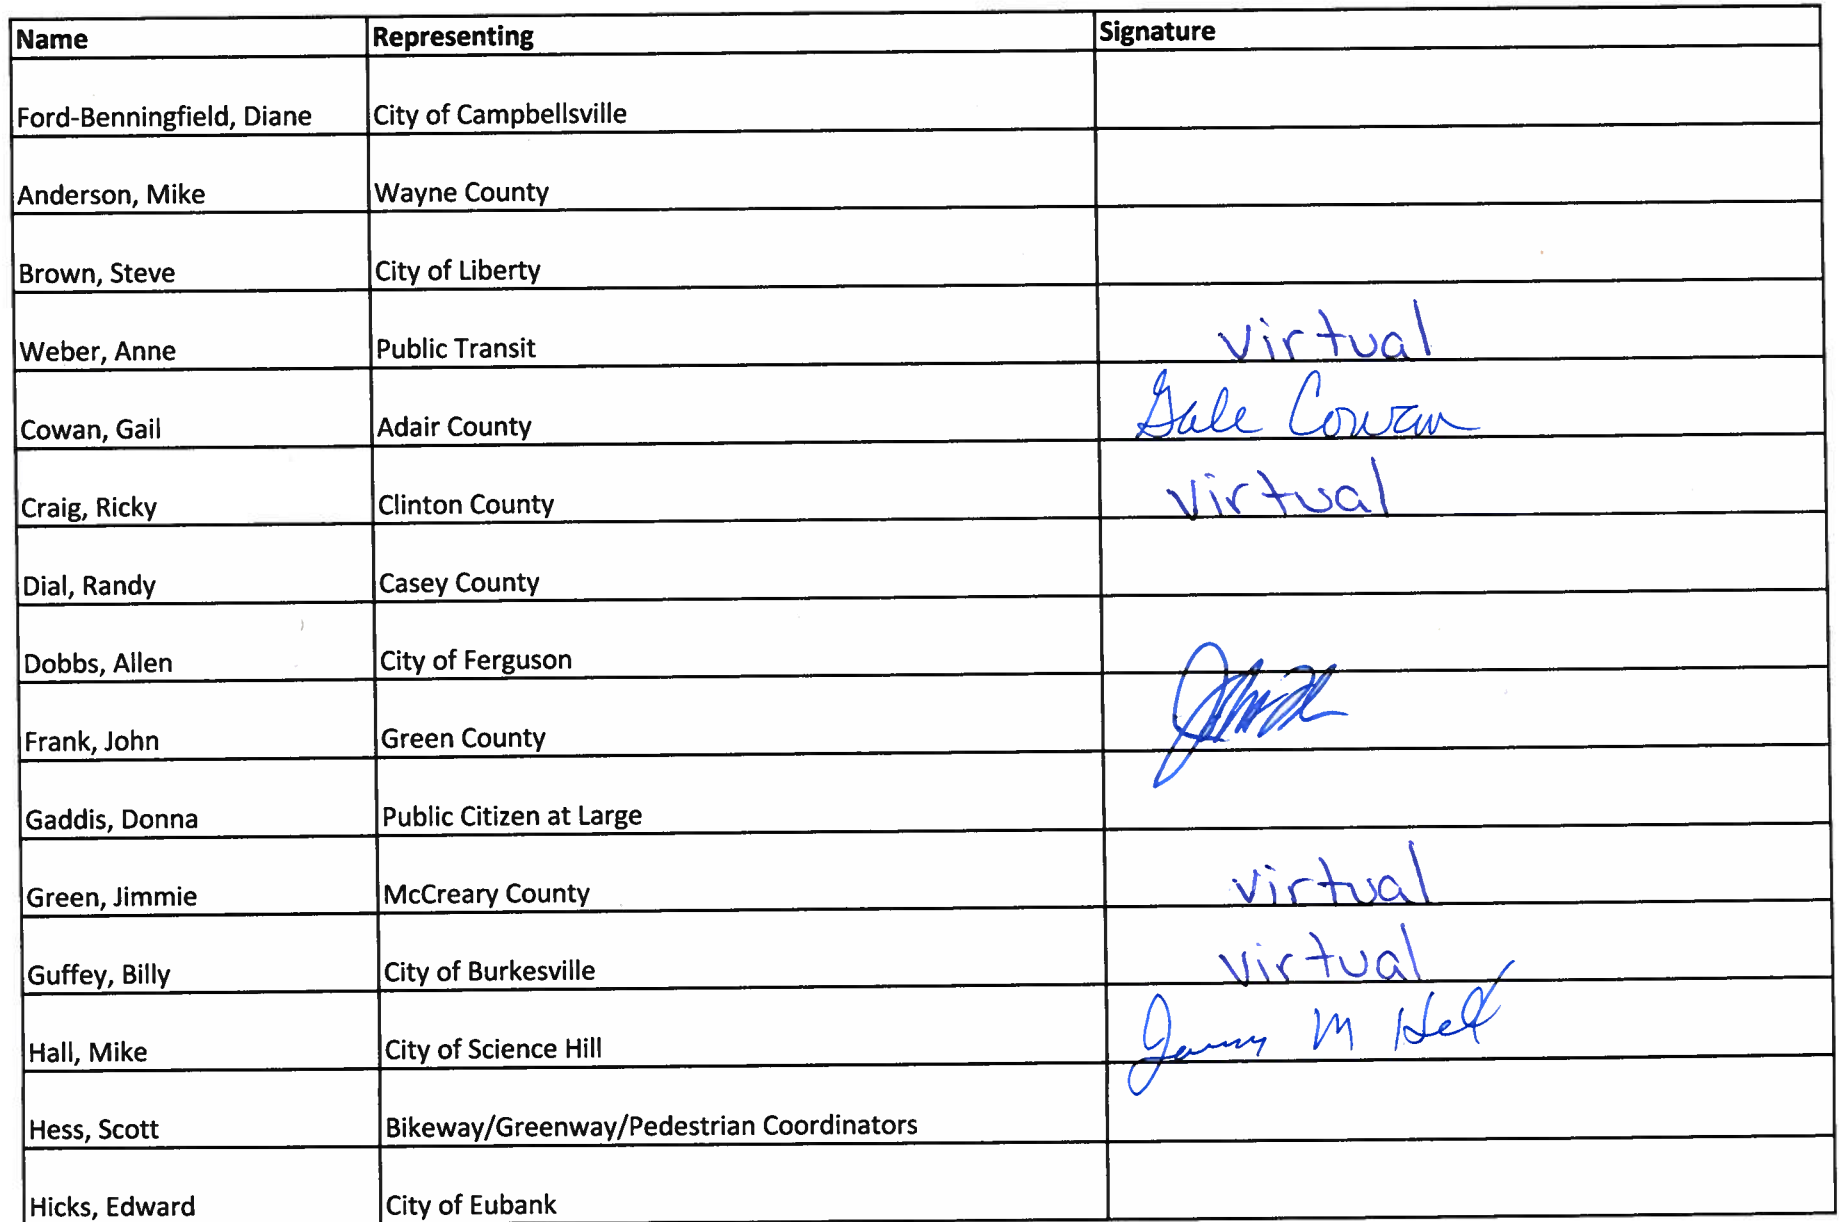 Name Representing Signature
Ford-Benningfield, Diane City of Campbellsville
Anderson, Mike Wayne County
Brown, Steve City of Liberty
Weber, Anne Public Transit virtual
Cowan, Gail Adair County Gale Cowan
Craig, Ricky Clinton County virtual
Dial, Randy Casey County
Dobbs, Allen City of Ferguson
Frank, John Green County
Gaddis, Donna Public Citizen at Large
Green, Jimmie McCreary County virtual
Guffey, Billy City of Burkesville virtual
Hall, Mike City of Science Hill M
Hess, Scott Bikeway/Greenway/Pedestrian Coordinators
Hicks, Edward City of Eubank